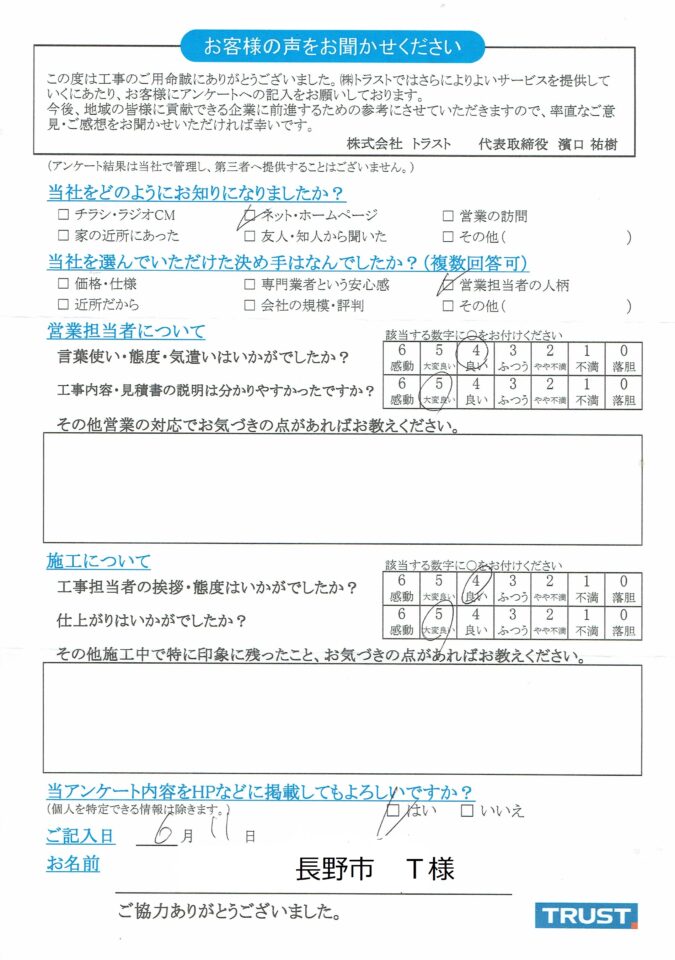 お客様の声をお聞かせください
この度は工事のご用命誠にありがとうございました。㈱トラストではさらによりよいサービスを提供して
いくにあたり、お客様にアンケートへの記入をお願いしております。
今後、地域の皆様に貢献できる企業に前進するための参考にさせていただきますので、率直なご意
見・ご感想をお聞かせいただければ幸いです。
株式会社 トラスト 代表取締役 濱口 祐樹
(アンケート結果は当社で管理し、第三者へ提供することはございません。)
当社をどのようにお知りになりましたか？
□ チラシ・ラジオCM □ ネット・ホームページ □ 営業の訪問
□ 家の近所にあった □ 友人・知人から聞いた □ その他( )
当社を選んでいただけた決め手はなんでしたか？(複数回答可)
□ 価格・仕様 □ 専門業者という安心感 □ 営業担当者の人柄
□ 近所だから □ 会社の規模・評判 □ その他( )
営業担当者について 該当する数字に○をお付けください
言葉使い・態度・気遣いはいかがでしたか？ 6 5 4 3 2 1 0
感動 大変良い 良い ふつう やや不満 不満 落胆
工事内容・見積書の説明は分かりやすかったですか？ 6 5 4 3 2 1 0
感動 大変良い 良い ふつう やや不満 不満 落胆
その他営業の対応でお気づきの点があればお教えください。
施工について 該当する数字に○をお付けください
工事担当者の挨拶・態度はいかがでしたか？ 6 5 4 3 2 1 0
感動 大変良い 良い ふつう やや不満 不満 落胆
仕上がりはいかがでしたか？ 6 5 4 3 2 1 0
感動 大変良い 良い ふつう やや不満 不満 落胆
その他施工中で特に印象に残ったこと、お気づきの点があればお教えください。
当アンケート内容をHPなどに掲載してもよろしいですか？
(個人を特定できる情報は除きます。) □ はい □ いいえ
ご記入日 6 月 11 日
お名前 長野市 T様
ご協力ありがとうございました。
TRUST.